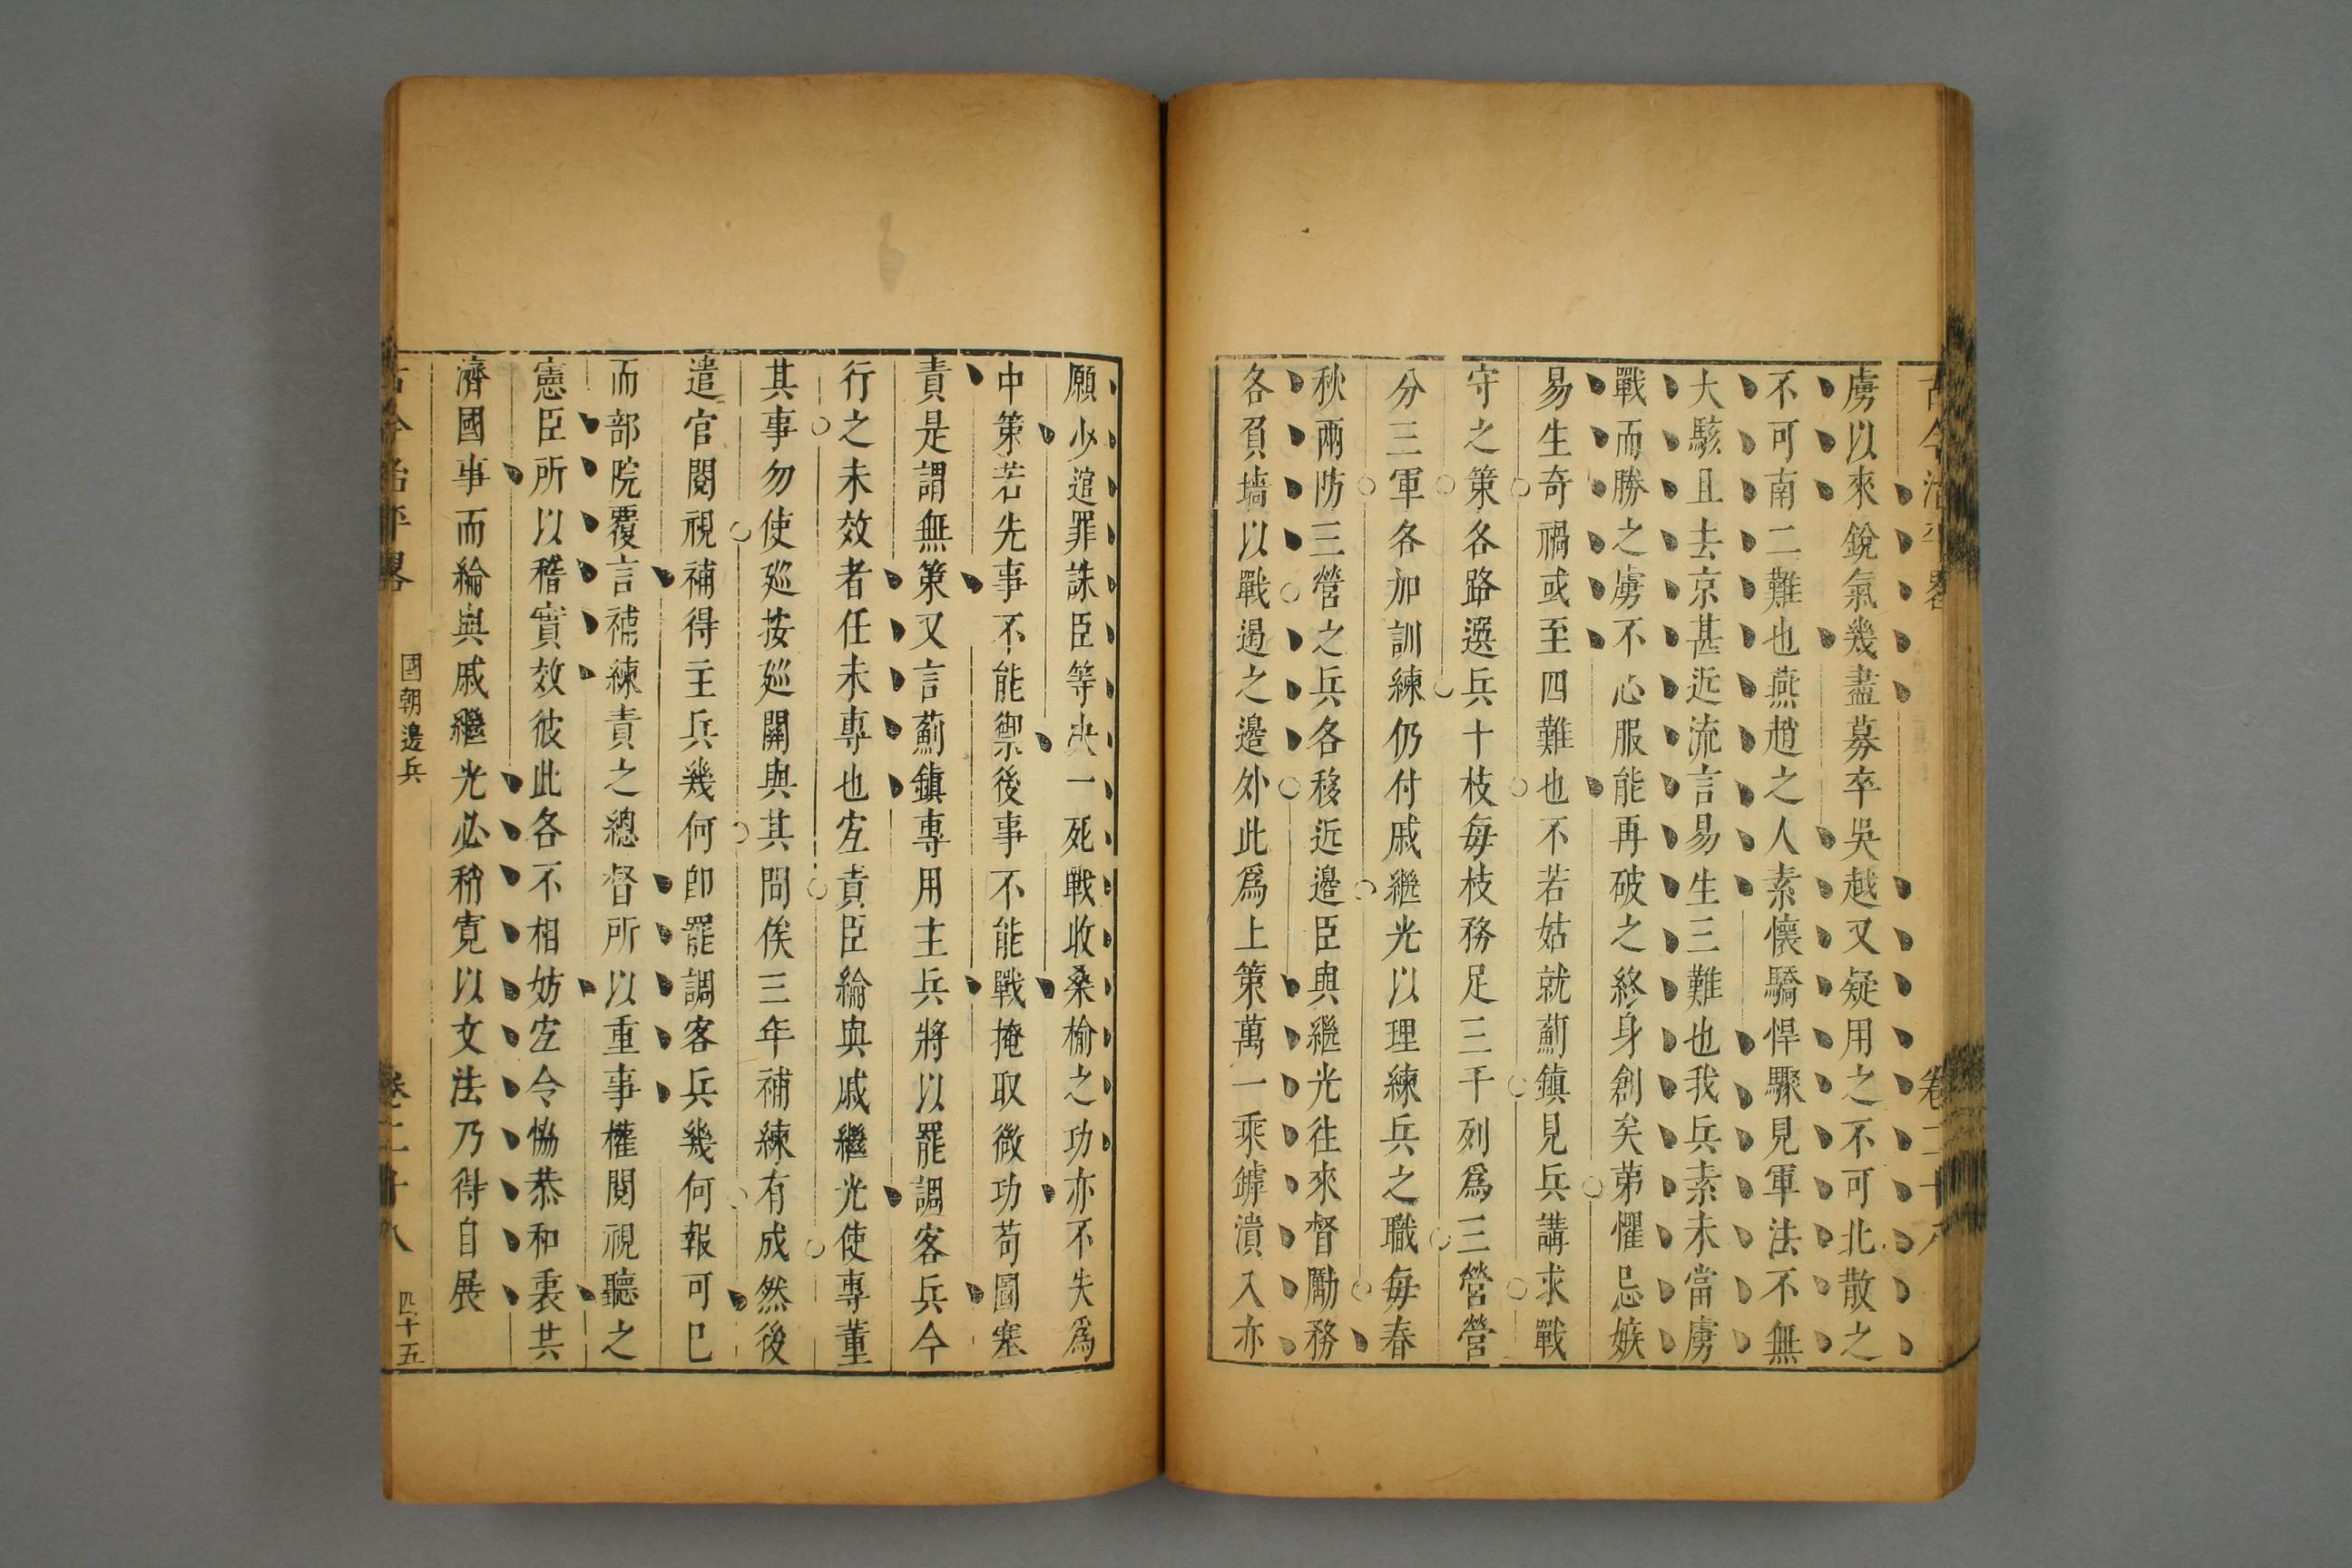 古今治平畧 卷二十八
虜以來銳氣幾盡募卒吳越又疑用之不可北散之
不可南二難也燕趙之人素懷驕悍驟見軍法不無
大駭且去京甚近流言易生三難也我兵素未當虜
戰而勝之虜不心服能再破之終身創矣苐懼忌嫉
易生奇禍或至四難也不若姑就薊鎮見兵講求戰
守之策各路選兵十枝每枝務足三千列爲三營營
分三軍各加訓練仍付戚繼光以理練兵之職每春
秋兩防三營之兵各移近邊臣與繼光往來督勵務
各負墻以戰遏之邊外此爲上策萬一乘罅潰入亦
願少逭罪誅臣等决一死戰收桑榆之功亦不失爲
中策若先事不能禦後事不能戰掩取微功苟圖塞
責是謂無策又言薊鎮專用主兵將以罷調客兵今
行之未效者任未專也宐責臣綸與戚繼光使專董
其事勿使廵按廵關與其間俟三年補練有成然後
遣官閱視補得主兵幾何卽罷調客兵幾何報可已
而部院覆言補練責之總督所以重事權閱視聽之
憲臣所以稽實效彼此各不相妨宐令恊恭和衷共
濟國事而綸與戚繼光必稍寬以文法乃得自展
古今治平畧 國朝邊兵 卷二十八 四十五